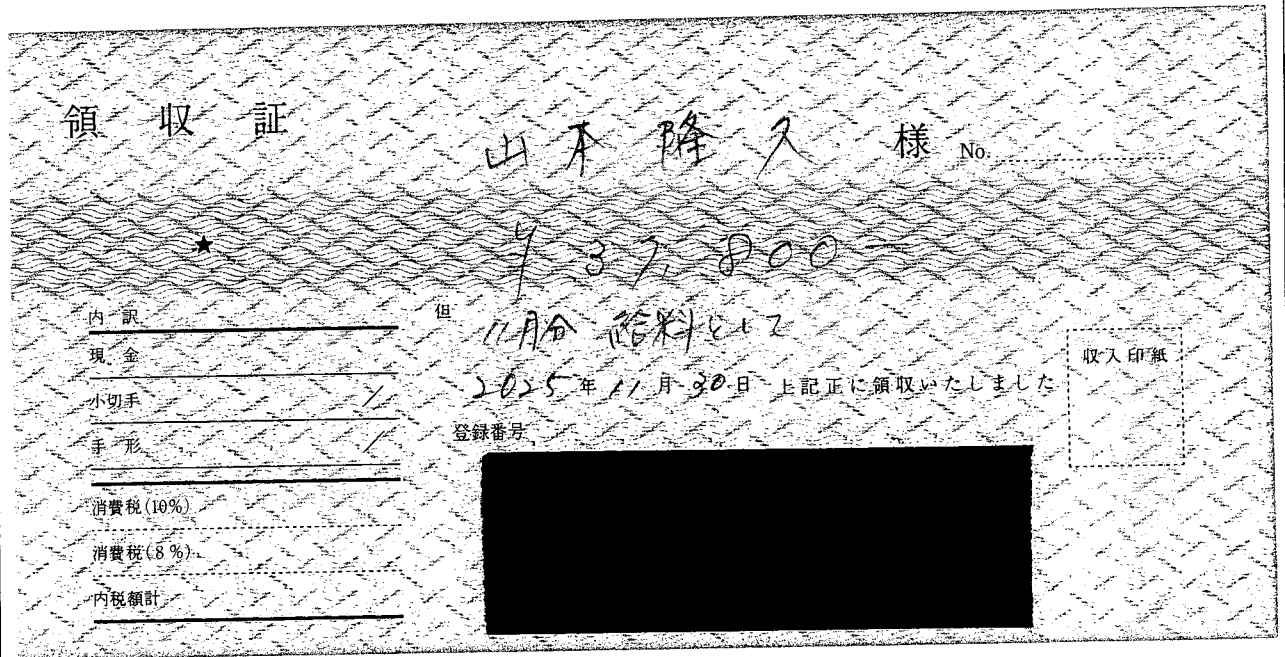 領収証
山本隆久 様 No.
★
¥37,800-
但 11月分 給料として
2025年11月30日 上記正に領収いたしました
登録番号
収入印紙
内訳
現金
小切手 /
手形 /
消費税(10%)
消費税(8%)
内税額計